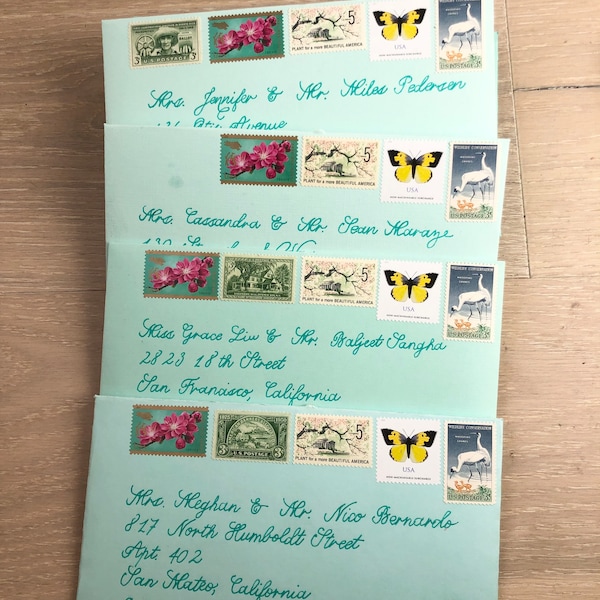 3 U.S. POSTAGE 3
5¢
PLANT for a more BEAUTIFUL AMERICA
USA
WILDLIFE CONSERVATION
WHOOPING CRANES
U.S. POSTAGE 3¢
Mrs. Jennifer & Mr. Miles Pedersen
Avenue
5¢
PLANT for a more BEAUTIFUL AMERICA
USA
WILDLIFE CONSERVATION
WHOOPING CRANES
U.S. POSTAGE 3¢
Mrs. Cassandra & Mr. Sean Maraze
5¢
PLANT for a more BEAUTIFUL AMERICA
USA
WILDLIFE CONSERVATION
WHOOPING CRANES
U.S. POSTAGE 3¢
Miss Grace Liu & Mr. Baljeet Sangha
2823 18th Street
San Francisco, California
3¢ U.S. POSTAGE 3¢
5¢
PLANT for a more BEAUTIFUL AMERICA
USA
WILDLIFE CONSERVATION
WHOOPING CRANES
U.S. POSTAGE 3¢
Mrs. Meghan & Mr. Nico Bernardo
817 North Humboldt Street
Apt. 402
San Mateo, California